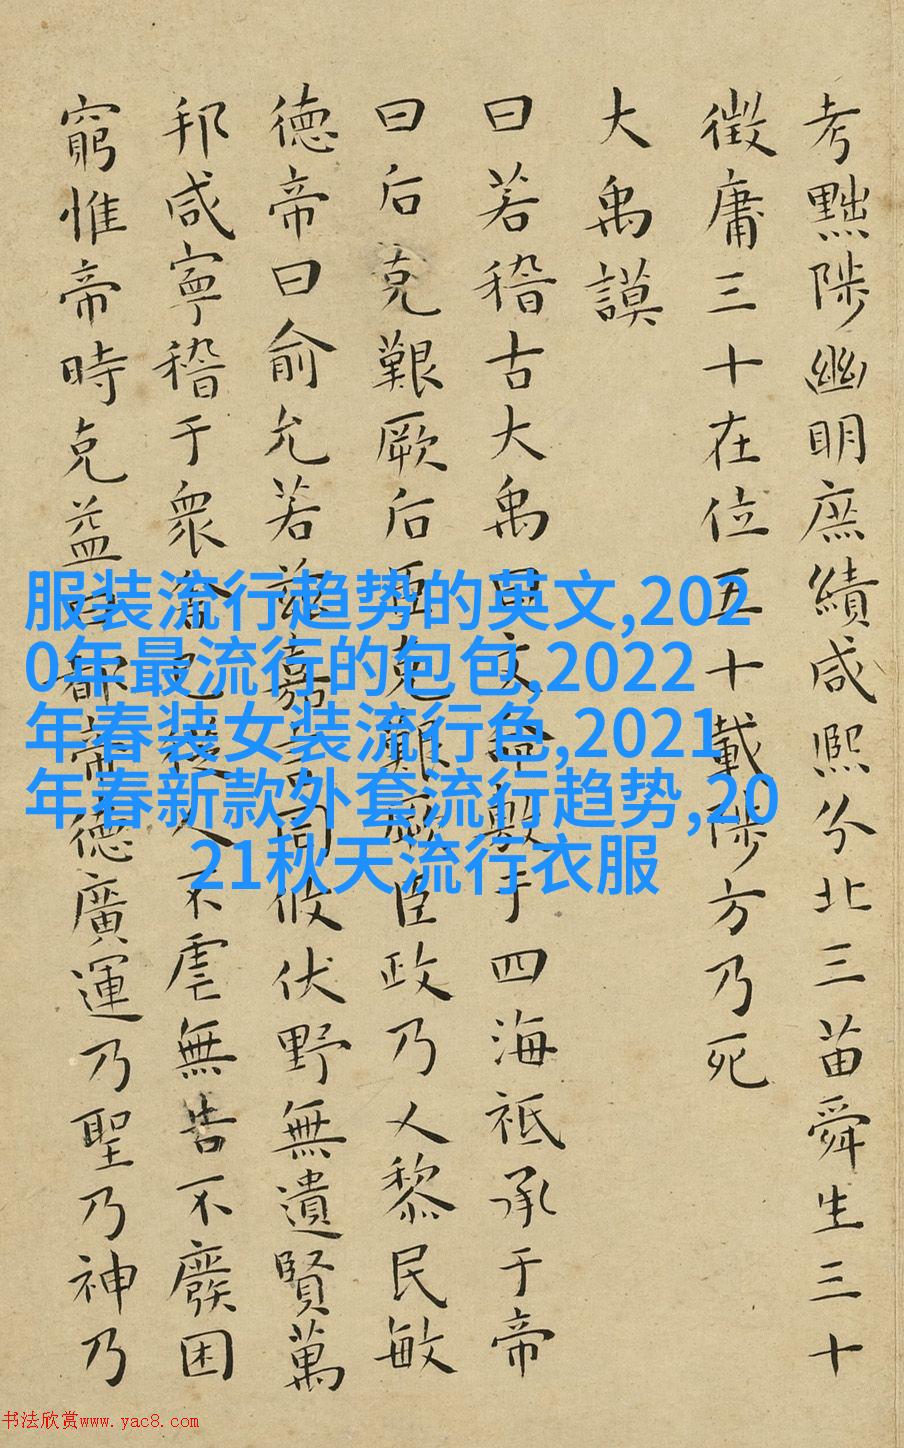 考黜陟幽明庶績咸熙分北三苗舜生三十
徵庸三十在位五十載陟方乃死
大禹謨
曰若稽古大禹曰文命敷于四海祗承于帝
曰后克艱厥后臣克艱厥臣政乃乂黎民敏
德帝曰俞允若茲嘉言罔攸伏野無遺賢萬
邦咸寧稽于眾舍己從人不虐無告不廢困
窮惟帝時克益曰都帝德廣運乃聖乃神乃
服装流行趋势的英文,202
0年最流行的包包,2022
年春装女装流行色,2021
年春新款外套流行趋势,20
21秋天流行衣服
书法欣赏www.yac8.com